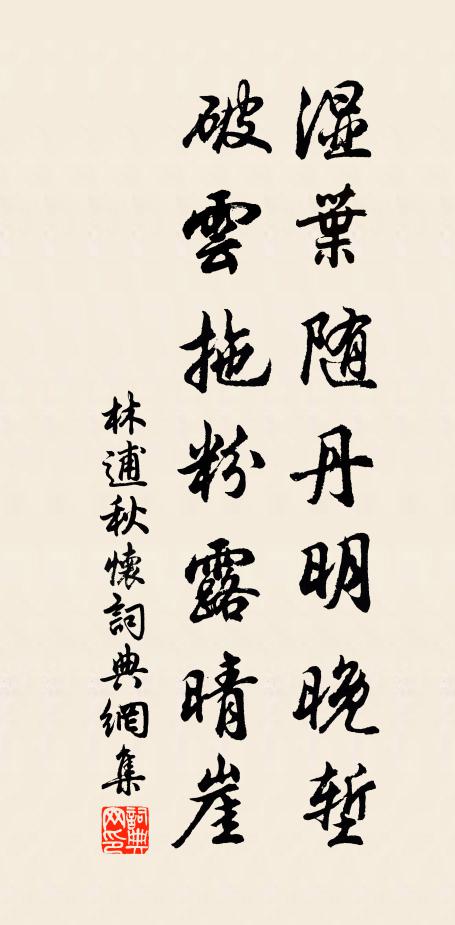 濕葉随丹明晚塹
破雲拖粉露晴崖
林逋秋懷詞典網集
詞典网印